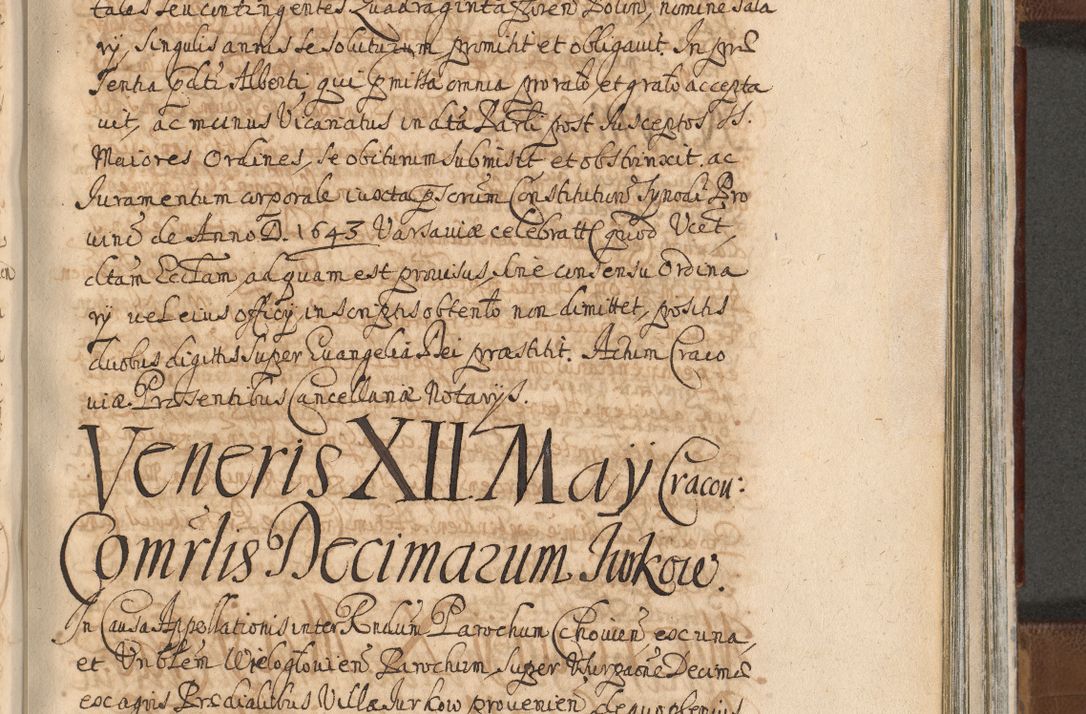 tales seu contingentes Quadraginta floren Polon, nomine sala
rÿ, singulis annis se soluturum promisit et obligavit. In prê
sentia pdti Alberti, qui pmissa omnia pro rato, et grato accepta
uit, ac munus Vicariatus in dta Parli post susceptos SS.
Maiores Ordines, se obiturum submisit et obstrinxit, ac
Iuramentum corporale iuxta pscrum Constitution Synodi Pro
uinc de Anno D. 1643 Varsaviæ celebratt quod Vcet,
dtam Ecclam, ad quam est prouisus, sine consensu Ordina
rÿ vel eius officÿ in scriptis obtento non dimittet, positis
duobus digittis super Euangelia Dei præstitit. Actum Craco
uiæ. Præsentibus Cancellariæ Notarÿs.
Veneris XII Maÿ Cracou:
Comrlis Decimarum Iurkow.
In Causa Appellationis inter Rndum Parochum Chouien, ex una,
et Vnblem Wielogłouien Parochum, super Vsurpaone Decimæ
ex agris Prædialibus Villæ Iurkow prouenien